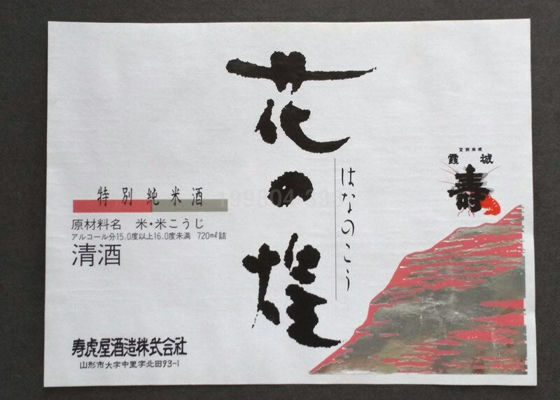 花の煌
はなのこう
霞城
寿
特別純米酒
原材料名 米・米こうじ
アルコール分15.0度以上16.0度未満 720mℓ詰
清酒
寿虎屋酒造株式会社
山形市大字中里字北田93-1